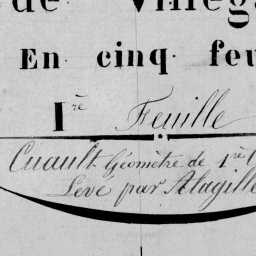 de Villeg
En cinq feu
I.re Feuille
Cuault Géomètre de 1.re C
Levé par Alagille